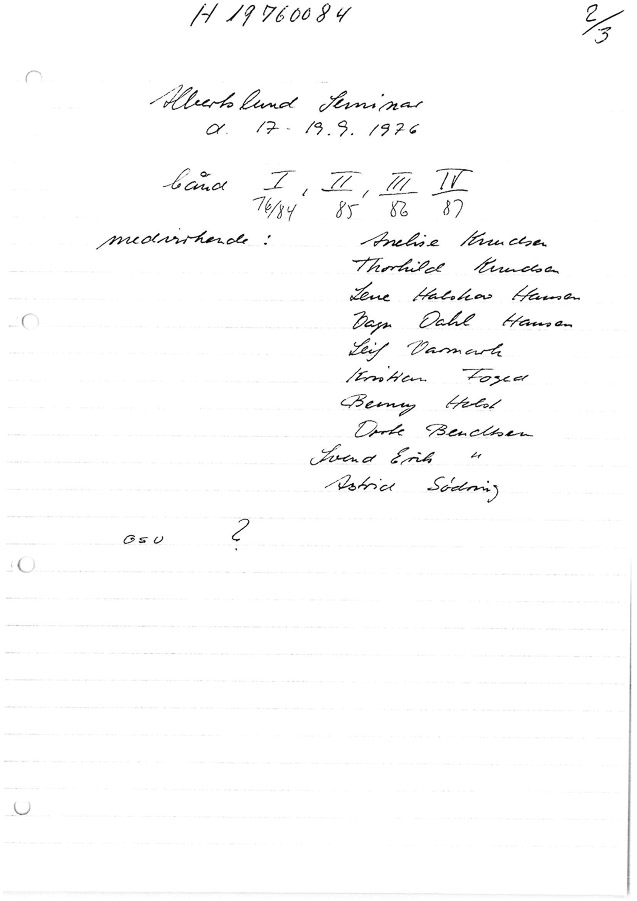 H 19760084 2/3
Albertslund Seminar
d. 17 - 19.9. 1976
bånd I, II, III IV
76/84 85 86 87
medvirkende : Anelise Knudsen
Thorhild Knudsen
Lene Halskov Hansen
Dagn Dahl Hansen
Leif Varmark
Kristian Foged
Benny Holst
Dorte Bendtsen
Svend Erik "
Astrid Södring
GSU ?